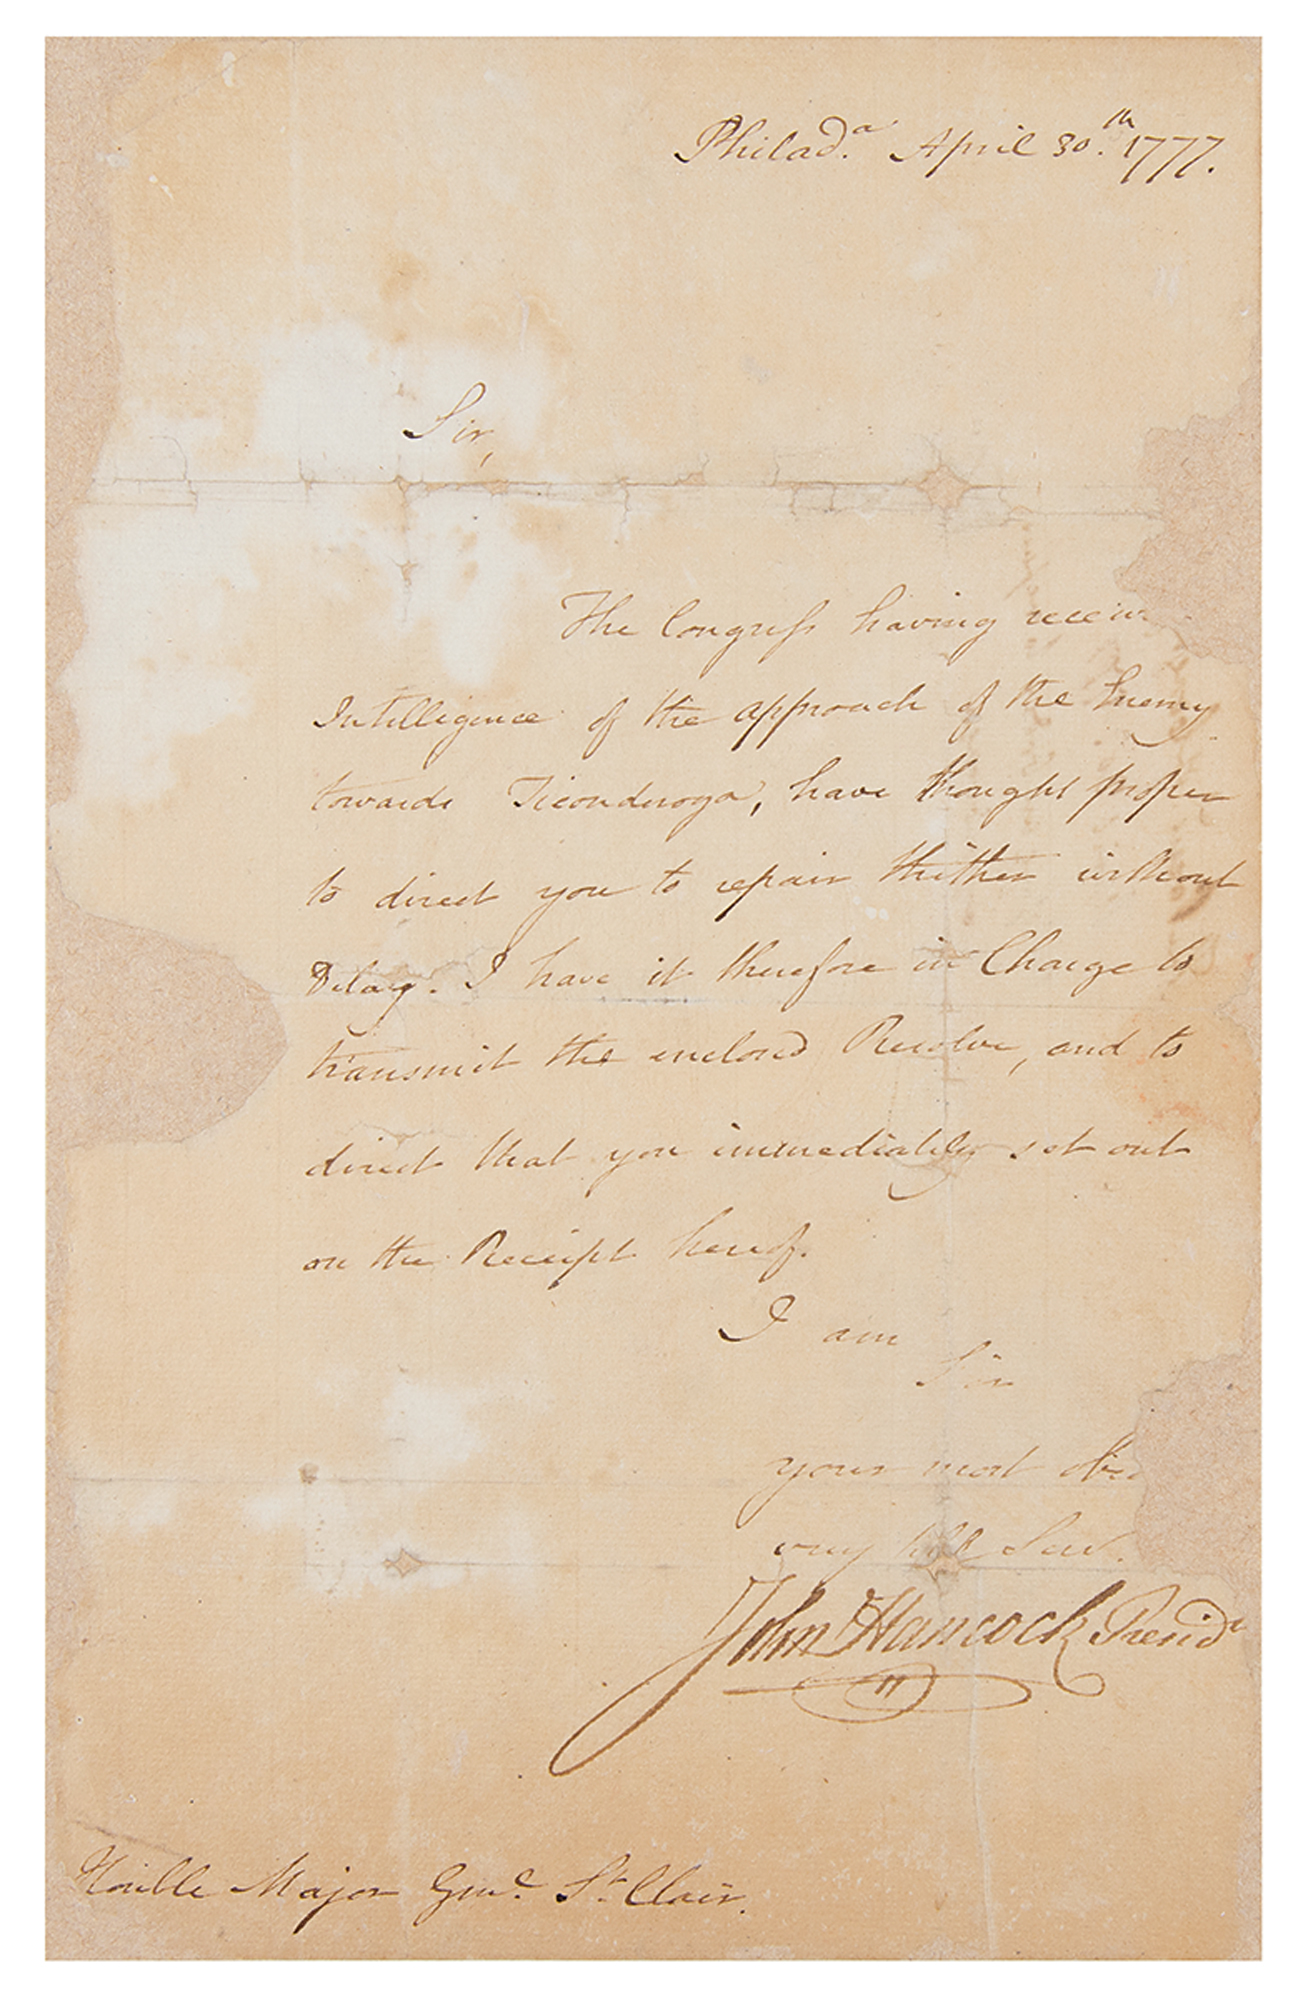 Philad.ᵃ April 30.ᵗʰ 1777.
Sir,
The Congress having receiv
Intelligence of the approach of the Enemy
towards Ticonderoga, have thought proper
to direct you to repair thither without
Delay. I have it therefore in Charge to
transmit the enclosed Resolve, and to
direct that you immediately set out
on the Receipt hereof.
I am
Sir
your most obed
very hble Serv.
John Hancock Presidᵗ
Honble Major Genˡ. Sᵗ. Clair.